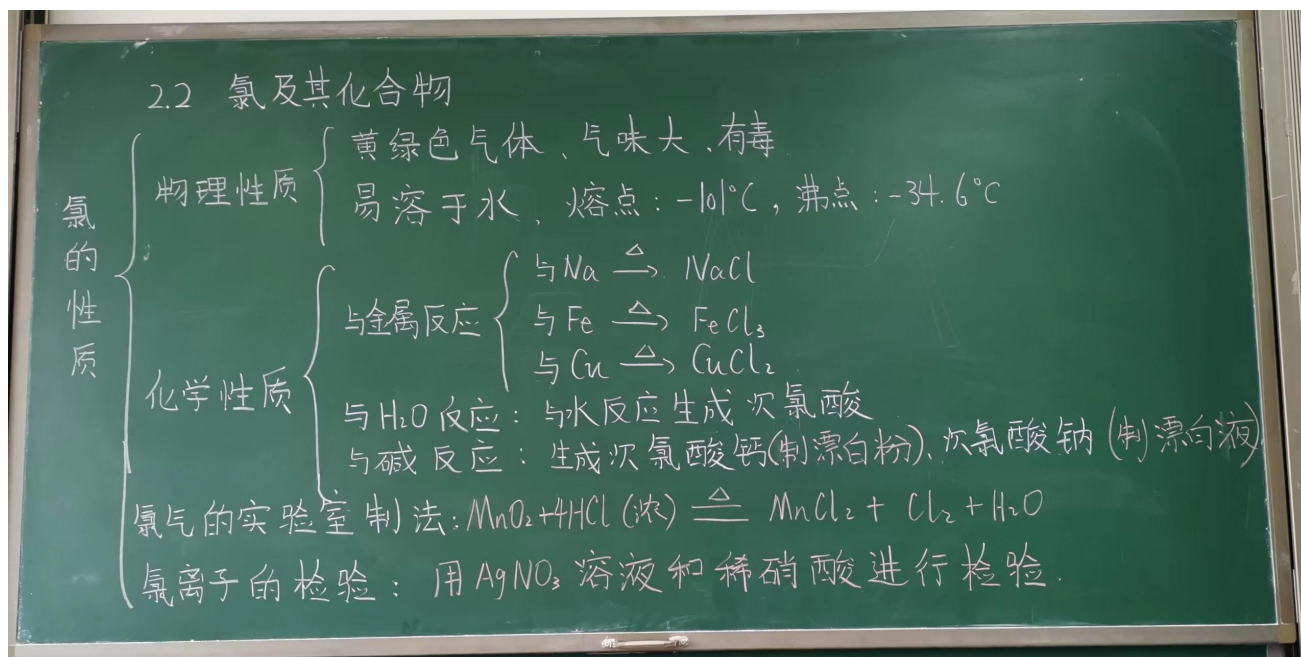 2.2 氯及其化合物
氯的性质
物理性质
黄绿色气体、气味大、有毒
易溶于水、熔点:-101°C,沸点:-34.6°C
化学性质
与金属反应
与Na △→ NaCl
与Fe △→ FeCl₃
与Cu △→ CuCl₂
与H₂O反应:与水反应生成次氯酸
与碱反应:生成次氯酸钙(制漂白粉)、次氯酸钠(制漂白液)
氯气的实验室制法:MnO₂+4HCl(浓) ≜ MnCl₂ + Cl₂ + H₂O
氯离子的检验:用AgNO₃溶液和稀硝酸进行检验.